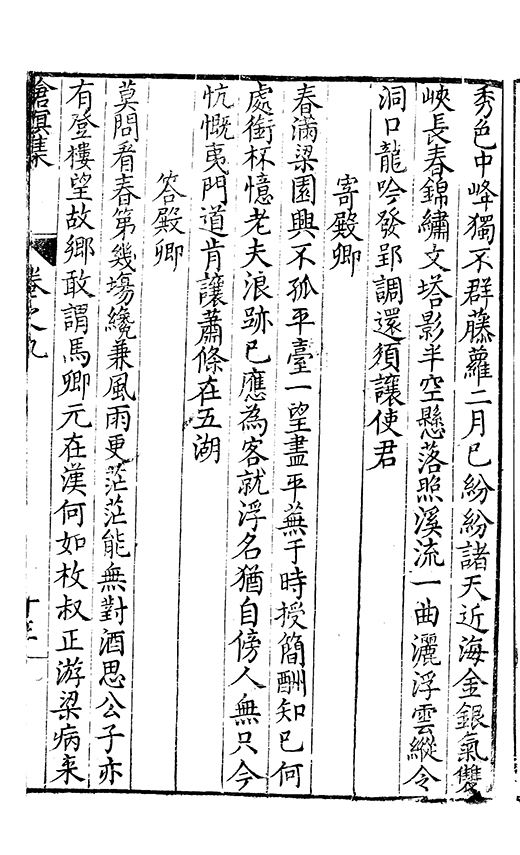 秀色中峰獨不群藤蘿二月已紛紛諸天近海金銀氣雙
峽長春錦繡文塔影半空懸落照溪流一曲灑浮雲縱令
洞口龍吟發郢調還須讓使君
寄殿卿
春滿梁園興不孤平臺一望盡平蕪于時授簡酬知已何
處銜杯憶老夫浪跡已應為客就浮名猶自傍人無只今
忼慨夷門道肯讓蕭條在五湖
答殿卿
莫問看春第幾塲纔兼風雨更茫茫能無對酒思公子亦
有登樓望故鄉敢謂馬卿元在漢何如枚叔正游梁病来
滄溟集 卷之九